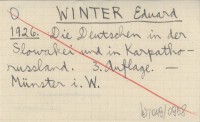 Q WINTER Eduard
1926. Die Deutschen in der
Slowakei und in Karpatho-
russland. 3. Auflage. —
Münster i. W.